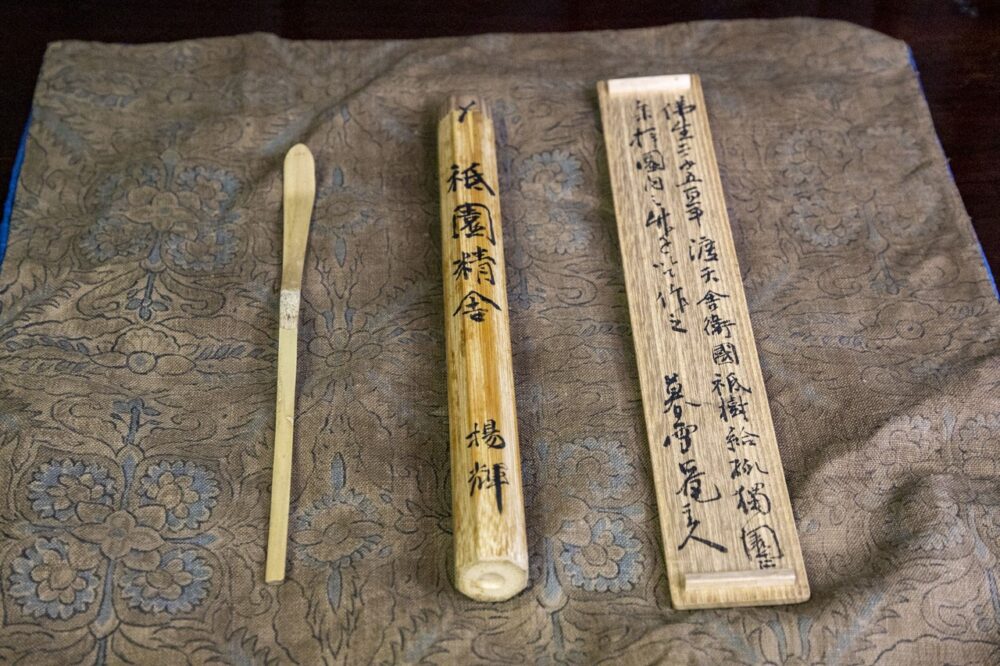 佛生二千五百年 渡天舍衛國祇樹給孤獨園
園内之竹 以作之 暮雲菴主人
祇園精舎
楊輝